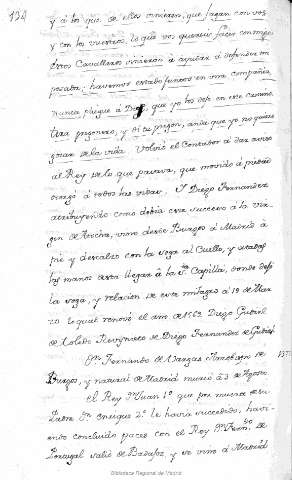 134
y á lo que de ellos vinieren, que hagan con vos
y con los vuestros lo que vos quereis facer con mos
otros Cavalleros vinieron á ayudar á defender mi
posada; havemos estado juntos en una compañia,
nunca plegue á Dios que yo los dexe en este camino
tira prisionero, y si es prision, anda que yo no quiero
gozar de la vida. Volvió el Contador á dar aviso
al Rey de lo que pasava, que movido á piedad
otorgó á todos las vidas. D. Diego Fernandez
atribuyendo como debia este succeso á la Vir
gen de Atocha, vino desde Burgos á Madrid á
pie y descalzo con la soga al Cuello, y atadas
las manos hasta llegar á la Sta. Capilla, donde dejó
la soga, y relacion de este milagro á 19 de Mar
zo lo qual renovó el año de 1562 Diego Gudiel
de Toledo Revisnieto de Diego Fernandez de Gudiel
Dn. Fernando de Vargas Arzobispo de
Burgos, y natural de Madrid murió á 3 de Agosto
el Rey Dn. Juan 1º que por muerte de su
Padre Dn. Enrique 2º le havia succedido, havi
endo concluido paces con el Rey Dn. Fernando de
Portugal salió de Badajoz y se vino á Madrid
Biblioteca Regional de Madrid